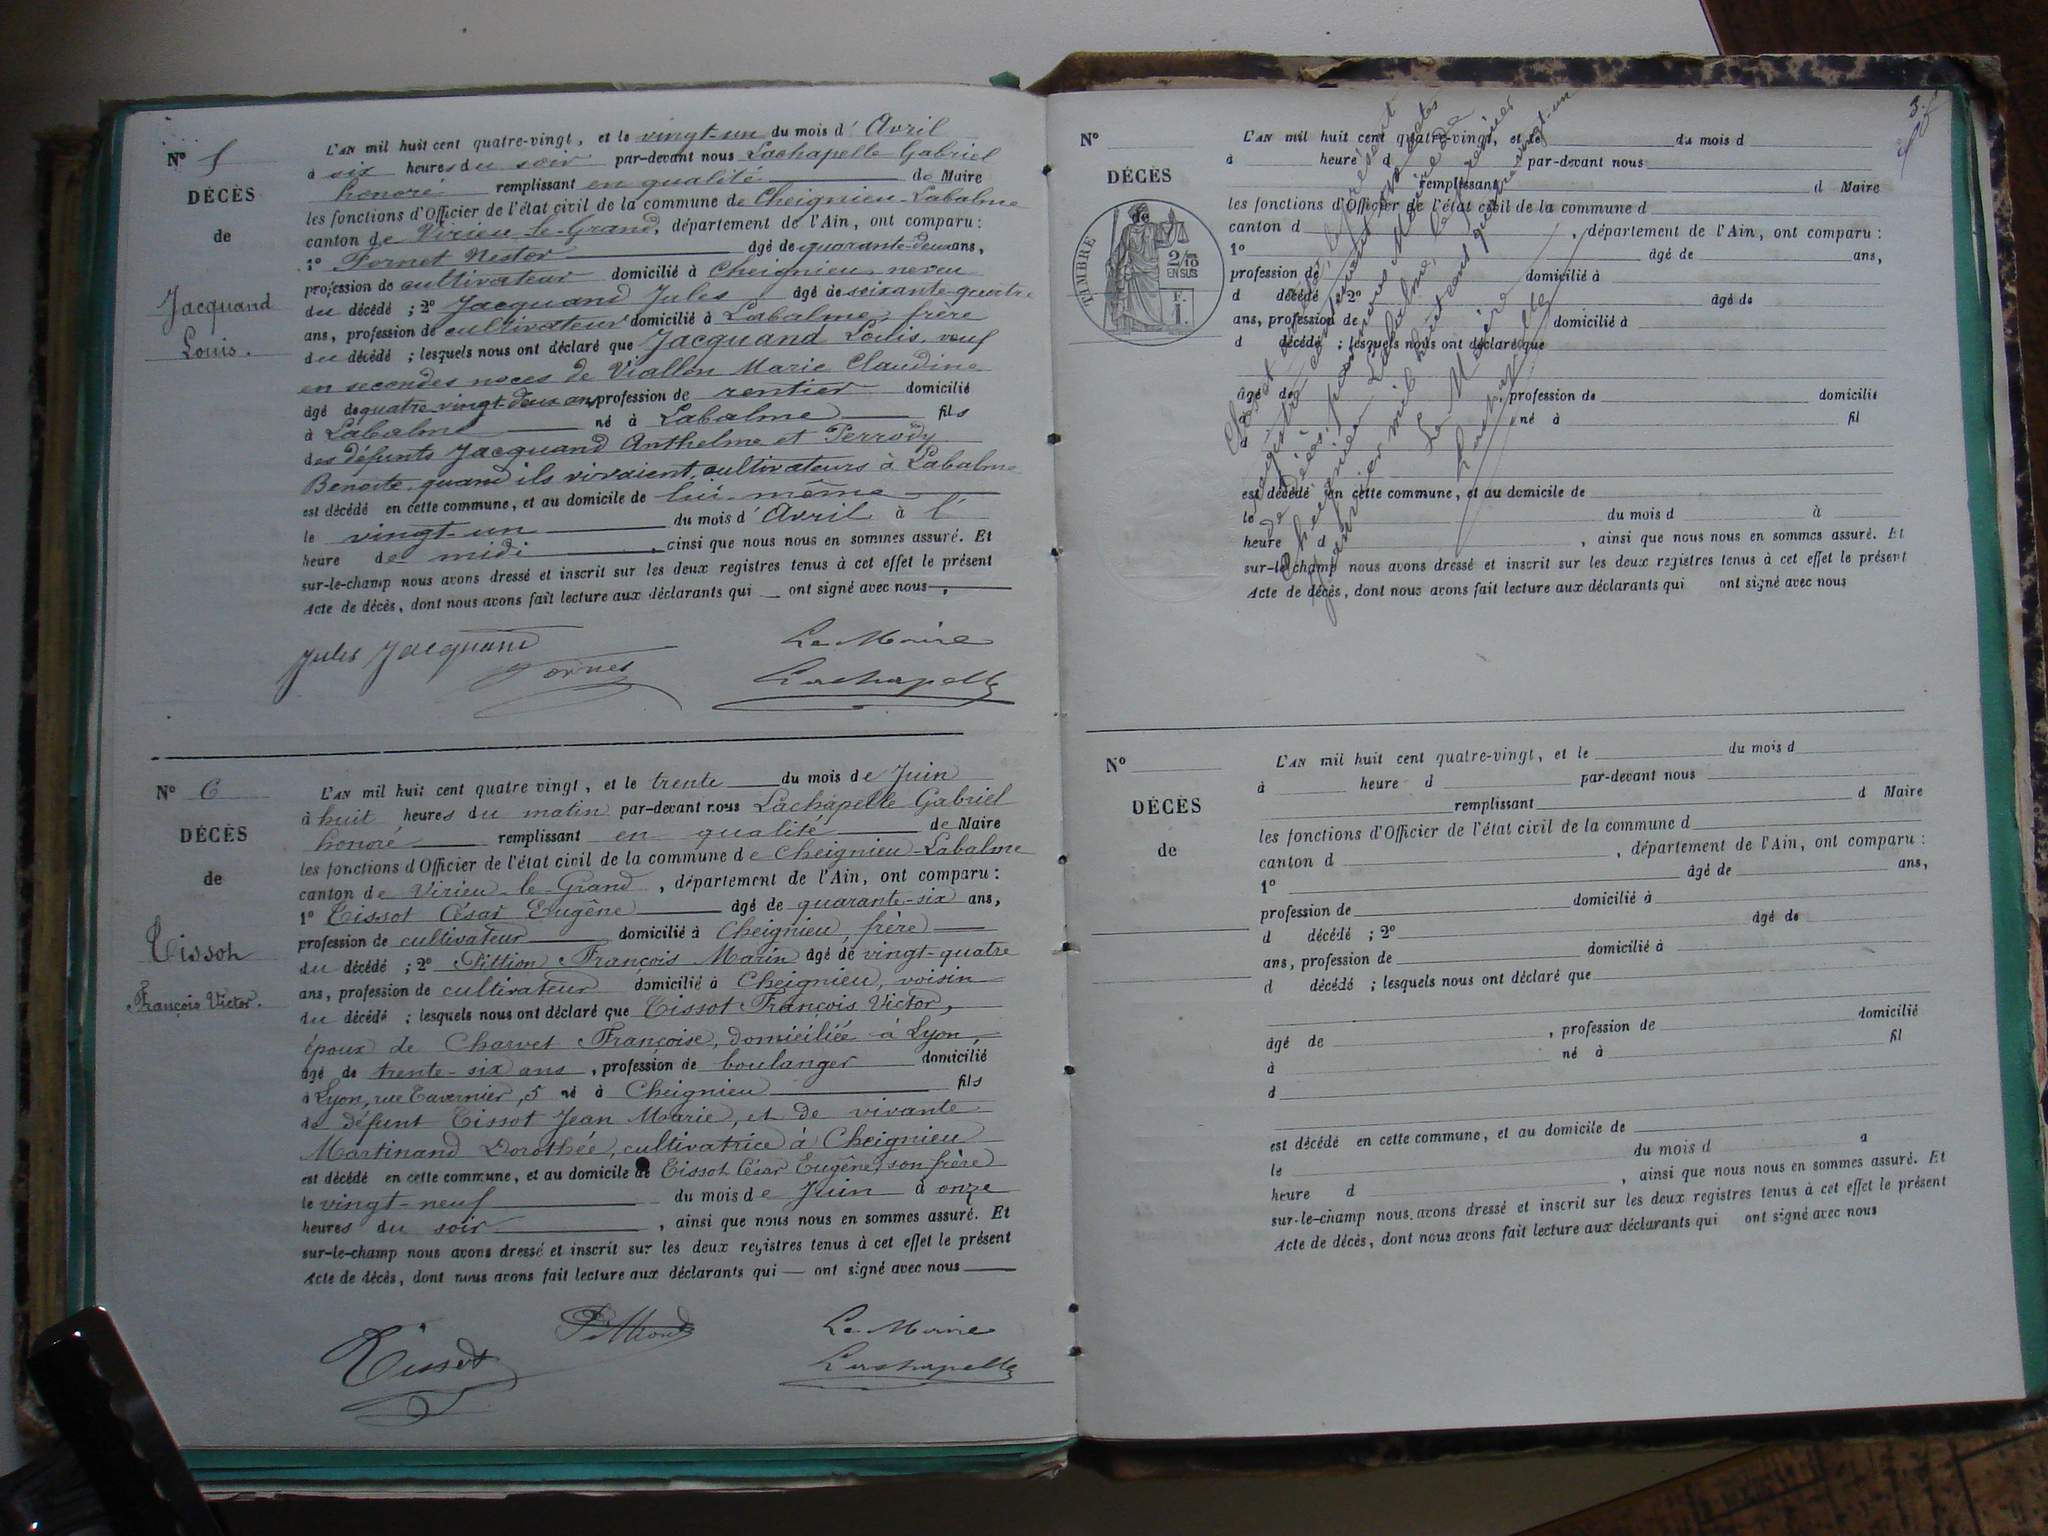 N° 5
DÉCÈS
de
Jacquand
Louis.
L'AN mil huit cent quatre-vingt, et le vingt-un du mois d'Avril
à six heures du soir par-devant nous Lachapelle Gabriel
honoré remplissant en qualité de Maire
les fonctions d'Officier de l'état civil de la commune de Cheignieu-Labalme
canton de Virieu-le-Grand, département de l'Ain, ont comparu :
1° Fornet Nestor âgé de quarante-deux ans,
profession de cultivateur domicilié à Cheignieu, neveu
du décédé ; 2° Jacquand Jules âgé de soixante-quatre
ans, profession de cultivateur domicilié à Labalme, frère
du décédé ; lesquels nous ont déclaré que Jacquand Louis, veuf
en secondes noces de Viallon Marie Claudine
âgé de quatre-vingt-deux ans, profession de rentier domicilié
à Labalme né à Labalme fils
des défunts Jacquand Anthelme et Perrody
Benoite, quand ils vivaient, cultivateurs à Labalme
est décédé en cette commune, et au domicile de lui-même
le vingt-un du mois d'Avril à l'
heure de midi, ainsi que nous nous en sommes assuré. Et
sur-le-champ nous avons dressé et inscrit sur les deux registres tenus à cet effet le présent
Acte de décès, dont nous avons fait lecture aux déclarants qui ont signé avec nous.
Jules Jacquand Fornet Le Maire
Lachapelle
N° 6
DÉCÈS
de
Tissot
François Victor.
L'AN mil huit cent quatre vingt, et le trente du mois de Juin
à huit heures du matin par-devant nous Lachapelle Gabriel
honoré remplissant en qualité de Maire
les fonctions d'Officier de l'état civil de la commune de Cheignieu-Labalme
canton de Virieu-le-Grand, département de l'Ain, ont comparu :
1° Tissot César Eugène âgé de quarante-six ans,
profession de cultivateur domicilié à Cheignieu, frère
du décédé ; 2° Pittion François Marin âgé de vingt-quatre
ans, profession de cultivateur domicilié à Cheignieu, voisin
du décédé ; lesquels nous ont déclaré que Tissot François Victor,
époux de Charvet Françoise, domiciliée à Lyon
âgé de trente-six ans, profession de boulanger domicilié
à Lyon, rue Tavernier, 5 né à Cheignieu fils
de défunt Tissot Jean Marie, et de vivante
Martinand Dorothée, cultivatrice à Cheignieu
est décédé en cette commune, et au domicile de Tissot César Eugène, son frère
le vingt-neuf du mois de Juin à onze
heures du soir, ainsi que nous nous en sommes assuré. Et
sur-le-champ nous avons dressé et inscrit sur les deux registres tenus à cet effet le présent
Acte de décès, dont nous avons fait lecture aux déclarants qui ont signé avec nous
Tissot Pittion Le Maire
Lachapelle
3.
N°
DÉCÈS
de
TIMBRE
2/10
EN SUS
F.
1.
L'AN mil huit cent quatre-vingt, et le du mois d
à heure d par-devant nous
remplissant d Maire
les fonctions d'Officier de l'état civil de la commune d
canton d , département de l'Ain, ont comparu :
1° âgé de ans,
profession de domicilié à
d décédé ; 2° âgé de
ans, profession de domicilié à
d décédé ; lesquels nous ont déclaré que
âgé de , profession de domicilié
à né à fil
d
est décédé en cette commune, et au domicile de
le du mois d à
heure d , ainsi que nous nous en sommes assuré. Et
sur-le-champ nous avons dressé et inscrit sur les deux registres tenus à cet effet le présent
Acte de décès, dont nous avons fait lecture aux déclarants qui ont signé avec nous
Clos et le présent
registre contenant six actes
de décès, par nous Maire de
Cheignieu Labalme, le premier
Janvier mil huit cent quatre-vingt-un
Le Maire
Lachapelle
N°
DÉCÈS
de
L'AN mil huit cent quatre-vingt, et le du mois d
à heure d par-devant nous
remplissant d Maire
les fonctions d'Officier de l'état civil de la commune d
canton d , département de l'Ain, ont comparu :
1° âgé de ans,
profession de domicilié à
d décédé ; 2° âgé de
ans, profession de domicilié à
d décédé ; lesquels nous ont déclaré que
âgé de , profession de domicilié
à né à fil
d
est décédé en cette commune, et au domicile de
le du mois d à
heure d , ainsi que nous nous en sommes assuré. Et
sur-le-champ nous avons dressé et inscrit sur les deux registres tenus à cet effet le présent
Acte de décès, dont nous avons fait lecture aux déclarants qui ont signé avec nous